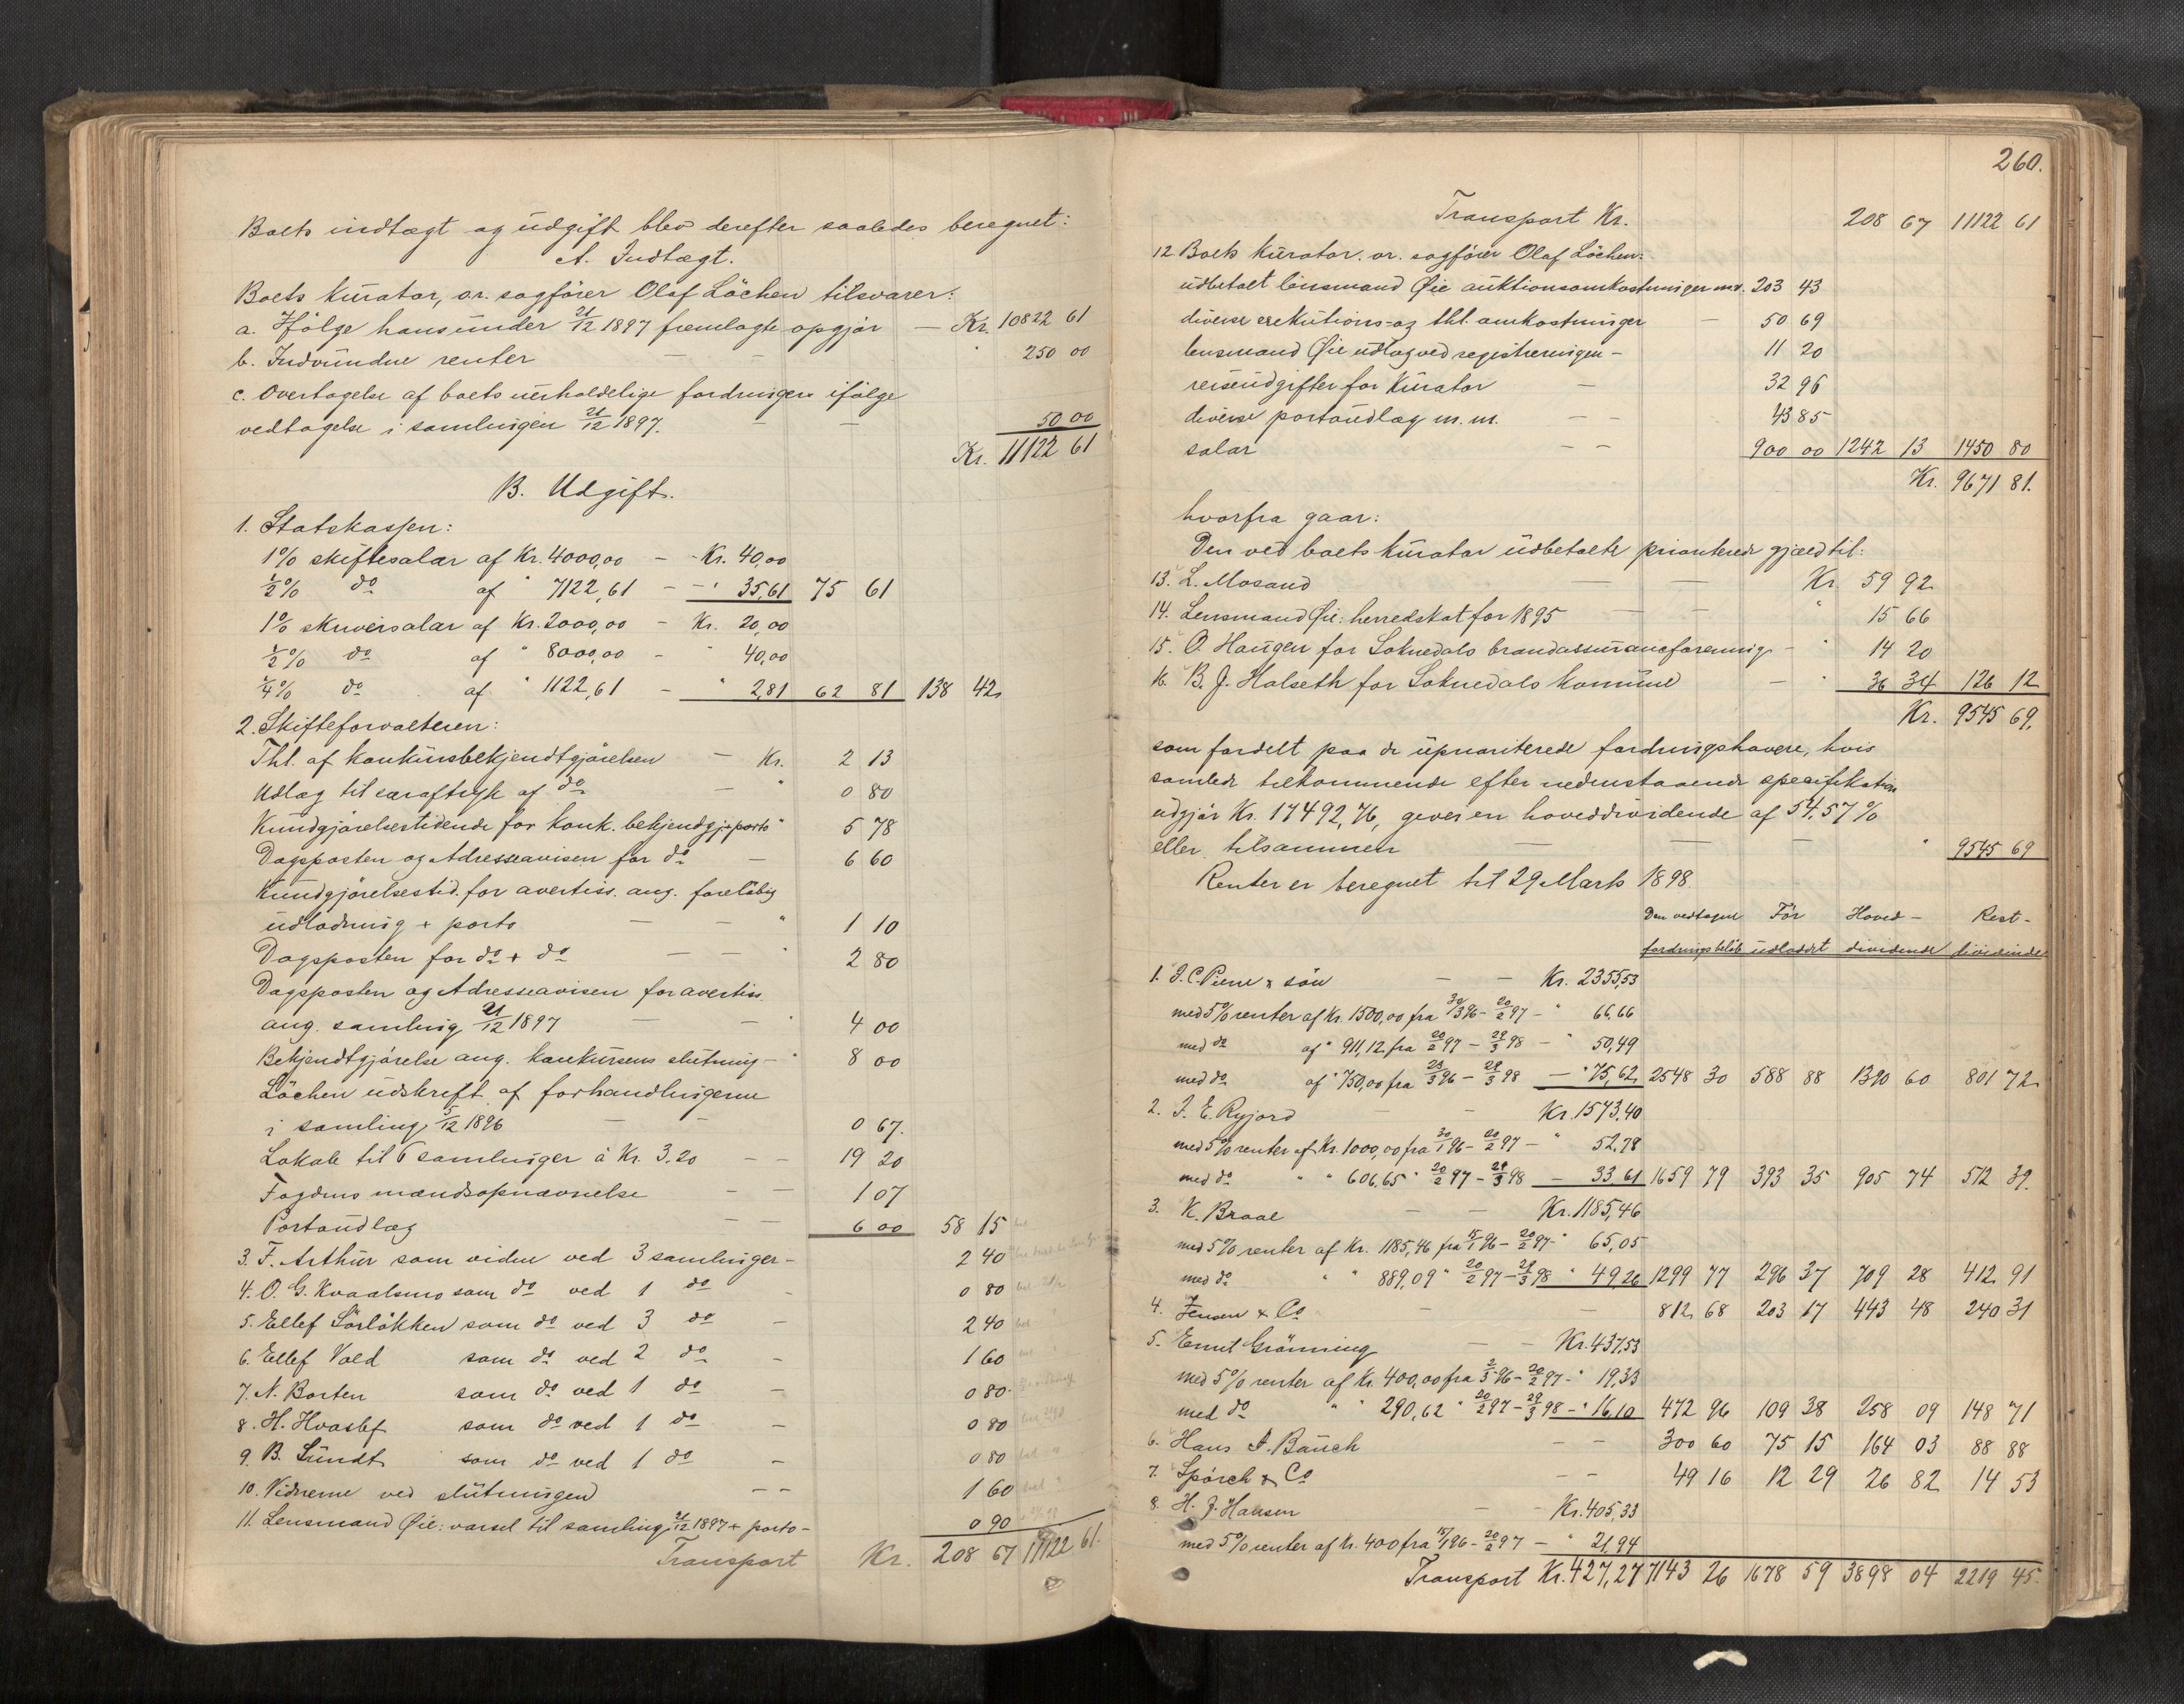 Boets indtægt og udgift blev derefter saaledes beregnet:
A. Indtægt.
Boets kurator, o.r. sagfører Olaf Löchen tilsvarer:
a. Ifölge hans under 21/12 1897 fremlagte opgjør — Kr. 10822 61
b. Indvundne renter — — " 250 00
c. Overtagelse af boets uerholdelige fordringer ifölge
vedtagelse i samlingen 21/12 1897. — — 50 00
Kr. 11122 61
B. Udgift.
1. Statskassen:
1% skiftesalar af Kr. 4000,00 — Kr. 40,00
1/2% do af " 7122,61 — " 35,61 75 61
1% skriversalar af Kr. 2000,00 — Kr. 20,00
1/2% do af " 8000,00 — " 40,00
1/4% do af " 1122,61 — " 2,81 62 81 138 42
2. Skifteforvalteren:
Thl. af konkursbekjendtgjørelsen — Kr. 2 13
Udlag til særaftryk af do — " 0 80
Kundgjørelsestidende for konk. bekjendtgj. + porto " 5 78
Dagsposten og Adresseavisen for do — 6 60
Kundgjørelsestid. for avertiss. ang. foreløbig
udlodning + porto — — " 1 10
Dagsposten for do + do — — " 2 80
Dagsposten og Adresseavisen for avertiss.
ang. samling 21/12 1897 — — " 4 00
Bekjendtgjørelse ang. konkursens slutning — " 8 00
Löchen udskrift af forhandlingerne
i samling 5/12 1896 — — 0 67.
Lokale til 6 samlinger à Kr. 3.20 — — 19 20
Fogdens mændsopnævnelse — — 1 07
Portoudlæg — — 6 00 58 15
3. F. Arthur som vidne ved 3 samlinger — 2 40
4. O. G. Kvaalsmo som do ved 1 do — 0 80
5. Ellef Sörlökken som do ved 3 do — 2 40
6. Ellef Vold som do ved 2 do — 1 60
7. N. Borten som do ved 1 do — 0 80
8. H. Hvoslef som do ved 1 do — 0 80
9. B. Lundt som do ved 1 do — 0 80
10. Vidnerne ved slutningen — — 1 60
11. Lensmand Øie: varsel til samling 21/12 1897 + porto — 0 90
Transport Kr. 208 67 11122 61.
260.
Transport Kr. 208 67 11122 61
12. Boets kurator o.r. sagfører Olaf Löchen:
udbetalt lensmand Øie auktionsomkostninger m.v. 203 43
diverse exekutions- og thl. omkostninger — 50 69
lensmand Øie udlæg ved registreringen — 11 20
reiseudgifter for kurator — 32 96
diverse portoudlæg m.m. — — 43 85
salar — — 900 00 1242 13 1450 80
Kr. 9671 81.
hvorfra gaar:
Den ved boets kurator udbetalte prioriterede gjæld til:
13. L. Mosand — Kr. 59 92
14. Lensmand Øie: herredskat for 1895 — — " 15 66
15. O. Haugen for Soknedals brandassuranceforening — " 14 20
16. B. J. Halseth for Soknedals kommune — " 36 34 126 12
Kr. 9545 69.
som fordelt paa de upriorterede fordringshavere, hvis
samlede tilkommende efter nedenstaaende specifikation
udgjør Kr. 17492,76, giver en hoveddividende af 54,57%
eller tilsammen — — — " 9545 69
Renter er beregnet til 29 Marts 1898.
Den vedtagne Før Hoved- Rest-
fordringsbeløb udloddet dividende dividende
1. J. C. Piene & sön — — Kr. 2355,53
med 5% renter af Kr. 1500,00 fra 30/3 96 – 20/2 97 — " 66,66
med do af " 911,12 fra 20/2 97 – 29/3 98 — " 50,49
med do af " 750,00 fra 23/3 96 – 29/3 98 — " 75,62 2548 30 588 88 1390 60 801 72
2. J. E. Ryjord — — Kr. 1573,40
med 5% renter af Kr. 1000,00 fra 30/1 96 – 20/2 97 — " 52,78
med do " " 606,65 " 20/2 97 – 29/3 98 — 33 61 1659 79 393 35 905 74 512 39.
3. K. Braae — — Kr. 1185,46
med 5% renter af Kr. 1185,46 fra 15/1 96 – 20/2 97 " 65,05
med do " " 889,09 " 20/2 97 – 29/3 98 " 49,26 1299 77 296 37 709 28 412 91
4. Jensen & Co — — 812 68 203 17 443 48 240 31
5. Ernst Grönning — — Kr. 437,53
med 5% renter af Kr. 400,00 fra 2/3 96 – 20/2 97 — " 19,33
med do " " 290,62 " 20/2 97 – 29/3 98 — " 16,10 472 96 109 38 258 09 148 71
6. Hans A. Bauch — — 300 60 75 15 164 03 88 88
7. Spörch & Co — — 49 16 12 29 26 82 14 53
8. H. J. Hansen — — Kr. 405,33
med 5% renter af Kr. 400 fra 15/1 96 – 20/2 97 — " 21,94
Transport Kr. 427,27 7143 26 1678 59 3898 04 2219 45.